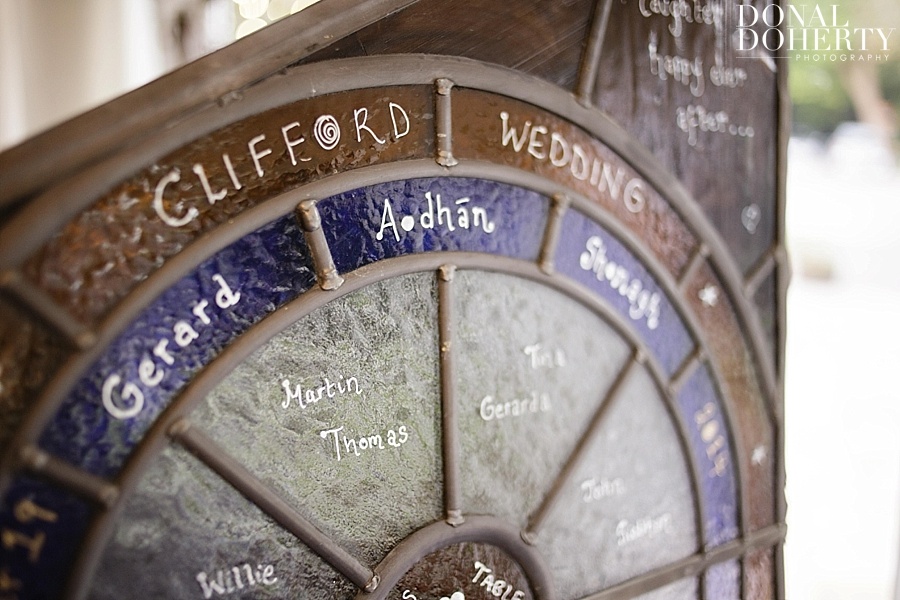 DONAL
DOHERTY
PHOTOGRAPHY
happy ever
after...
CLIFFORD WEDDING
Gerard Aodhán Shonagh
Martin
Thomas
Tina
Gerarda
Willie
TABLE
19